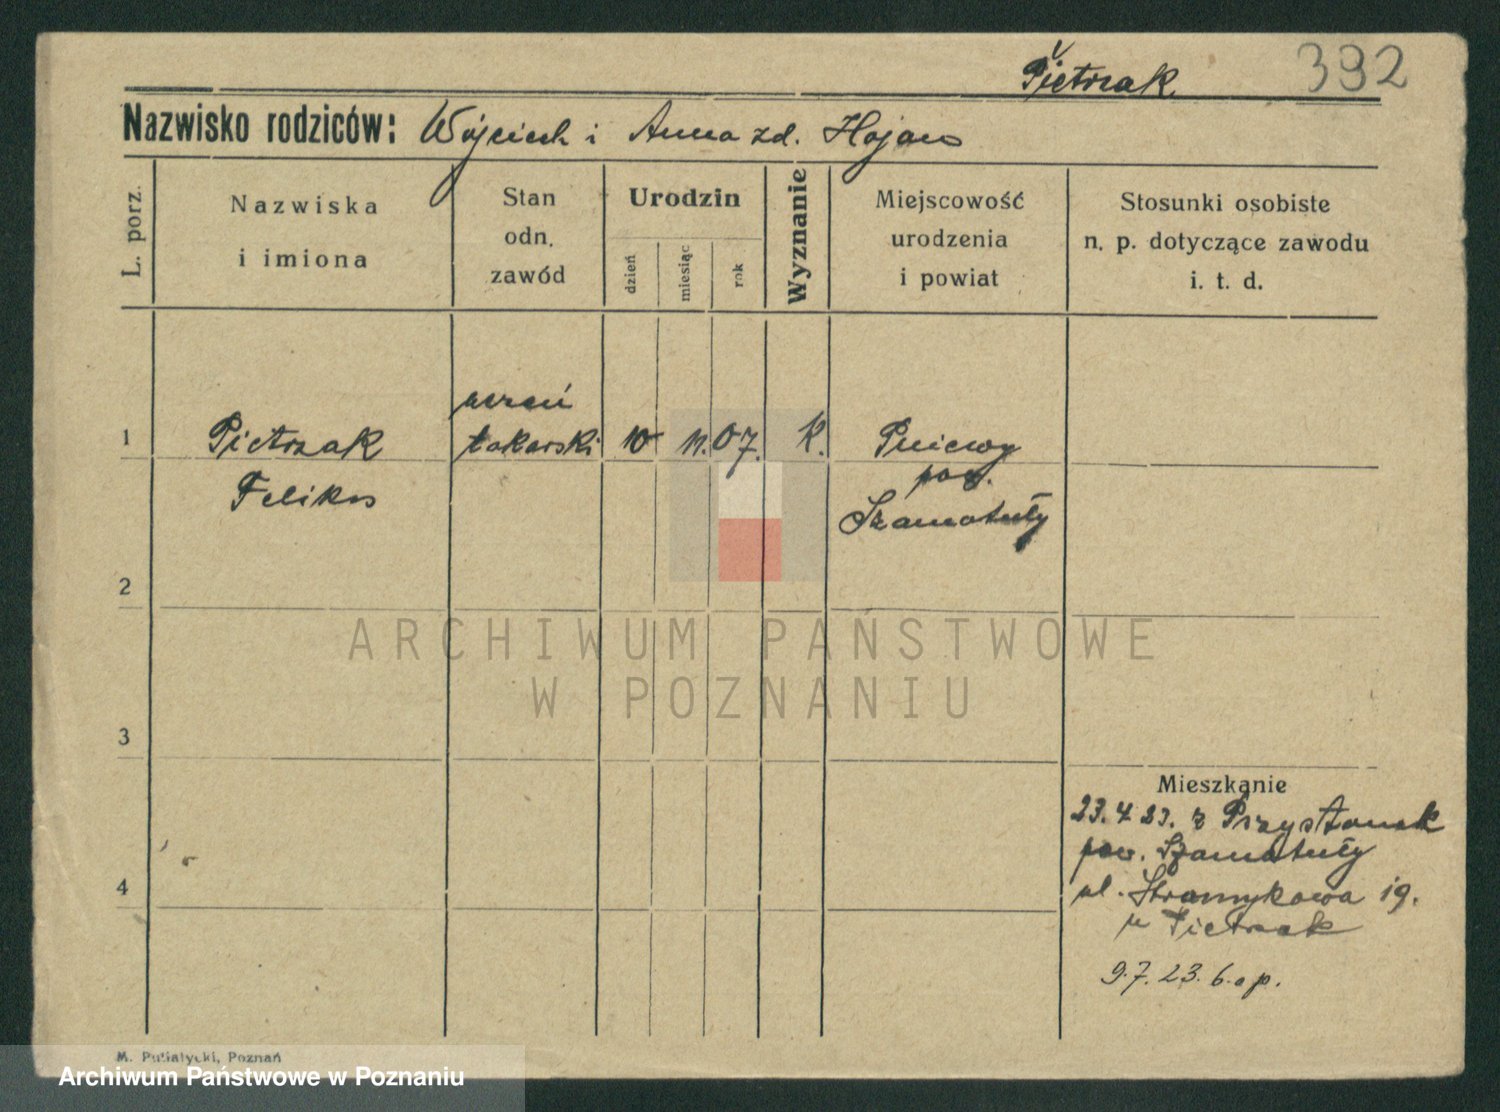 Pietrzak
392
Nazwisko rodziców: Wojciech i Anna zd. Hojan
L. porz.
Nazwiska
i imiona
Stan
odn.
zawód
Urodzin
dzień
miesiąc
rok
Wyznanie
Miejscowość
urodzenia
i powiat
Stosunki osobiste
n. p. dotyczące zawodu
i. t. d.
1
Pietrzak
Feliks
uczeń
tokarski
10
11.
07.
K.
Pniewy
pow.
Szamotuły
2
3
4
Mieszkanie
23.4.23. z Przystanek
pow. Szamotuły
ul. Strumykowa 19.
u Pietrzak
9.7.23. b.op.
M. Putiatycki, Poznań
ARCHIWUM PAŃSTWOWE
W POZNANIU
Archiwum Państwowe w Poznaniu